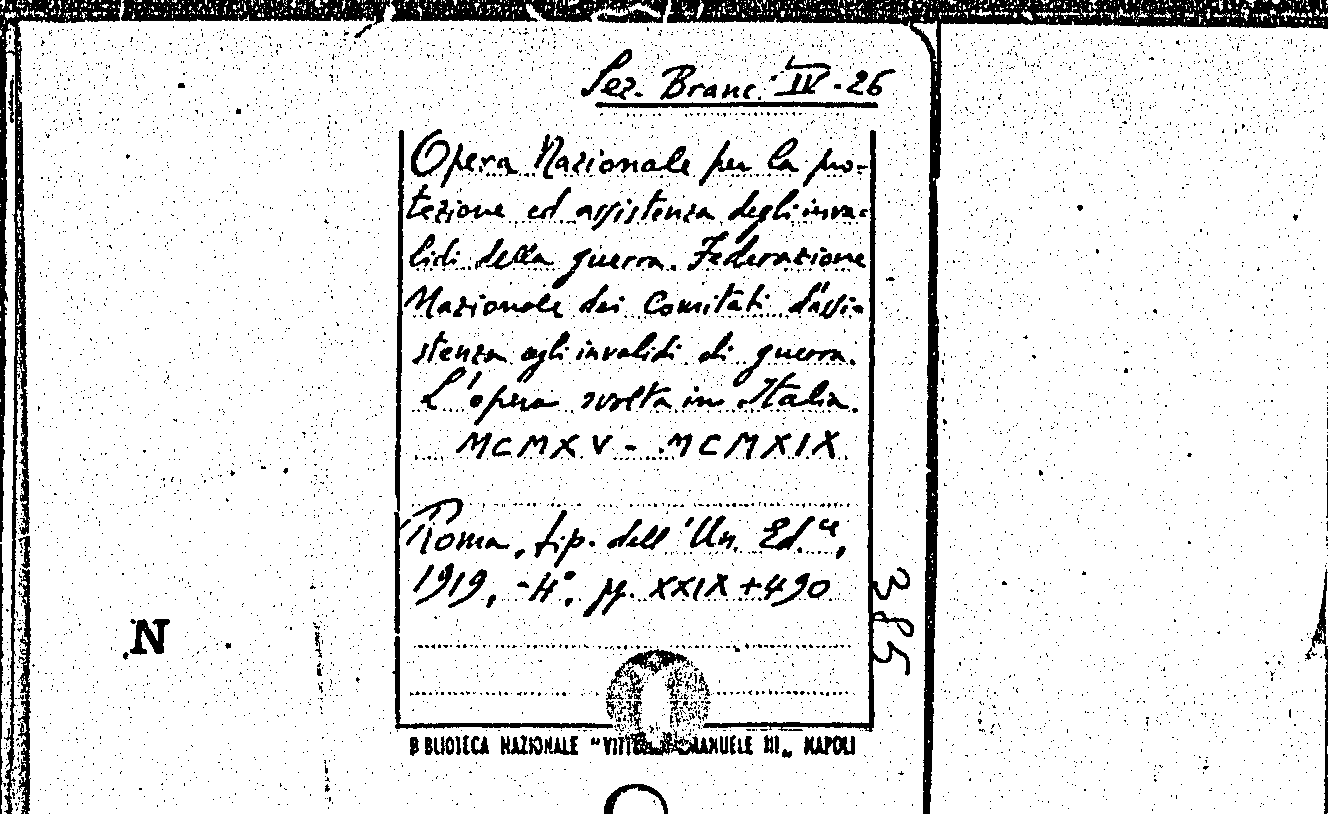 Sez. Branc. IV - 26
Opera Nazionale per la pro-
tezione ed assistenza degli inva-
lidi della guerra. Federazione
Nazionale dei Comitati d'assi-
stenza agli invalidi di guerra.
L'opera svolta in Italia.
MCMXV - MCMXIX
Roma, tip. dell'Un. Ed.ce,
1919, -4°, pp. XXIX+490
385
N
BIBLIOTECA NAZIONALE "VITTORIO EMANUELE III„ NAPOLI